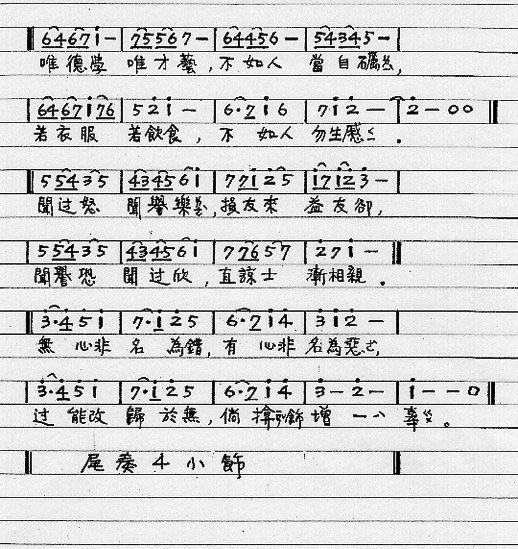 6467i－ | 75567－ | 64456－ | 54345－
唯德學 唯才藝，不如人 當自礪ㄌㄧˋ，
6467i76 | 52i－ | 6·7i6 | 7i2－ | 2－00
若衣服 若飲食，不 如人 勿生慼ㄑㄧ．
55435 | 43456i | 77i25 | i7i23－
聞过怒 聞譽樂，損友來 益友卻，
55435 | 43456i | 77657 | 27i－
聞譽恐 聞过欣，直諒士 漸相親．
3·45i | 7·i25 | 6·7i4 | 3i2－
無 心非 名 為錯，有 心非 名為惡ㄜˋ，
3·45i | 7·i25 | 6·7i4 | 3－2－ | i－－0
过 能改 歸 於無，倘 揜飾 增 一ㄧ 辜ㄍㄨ。
尾奏4小節